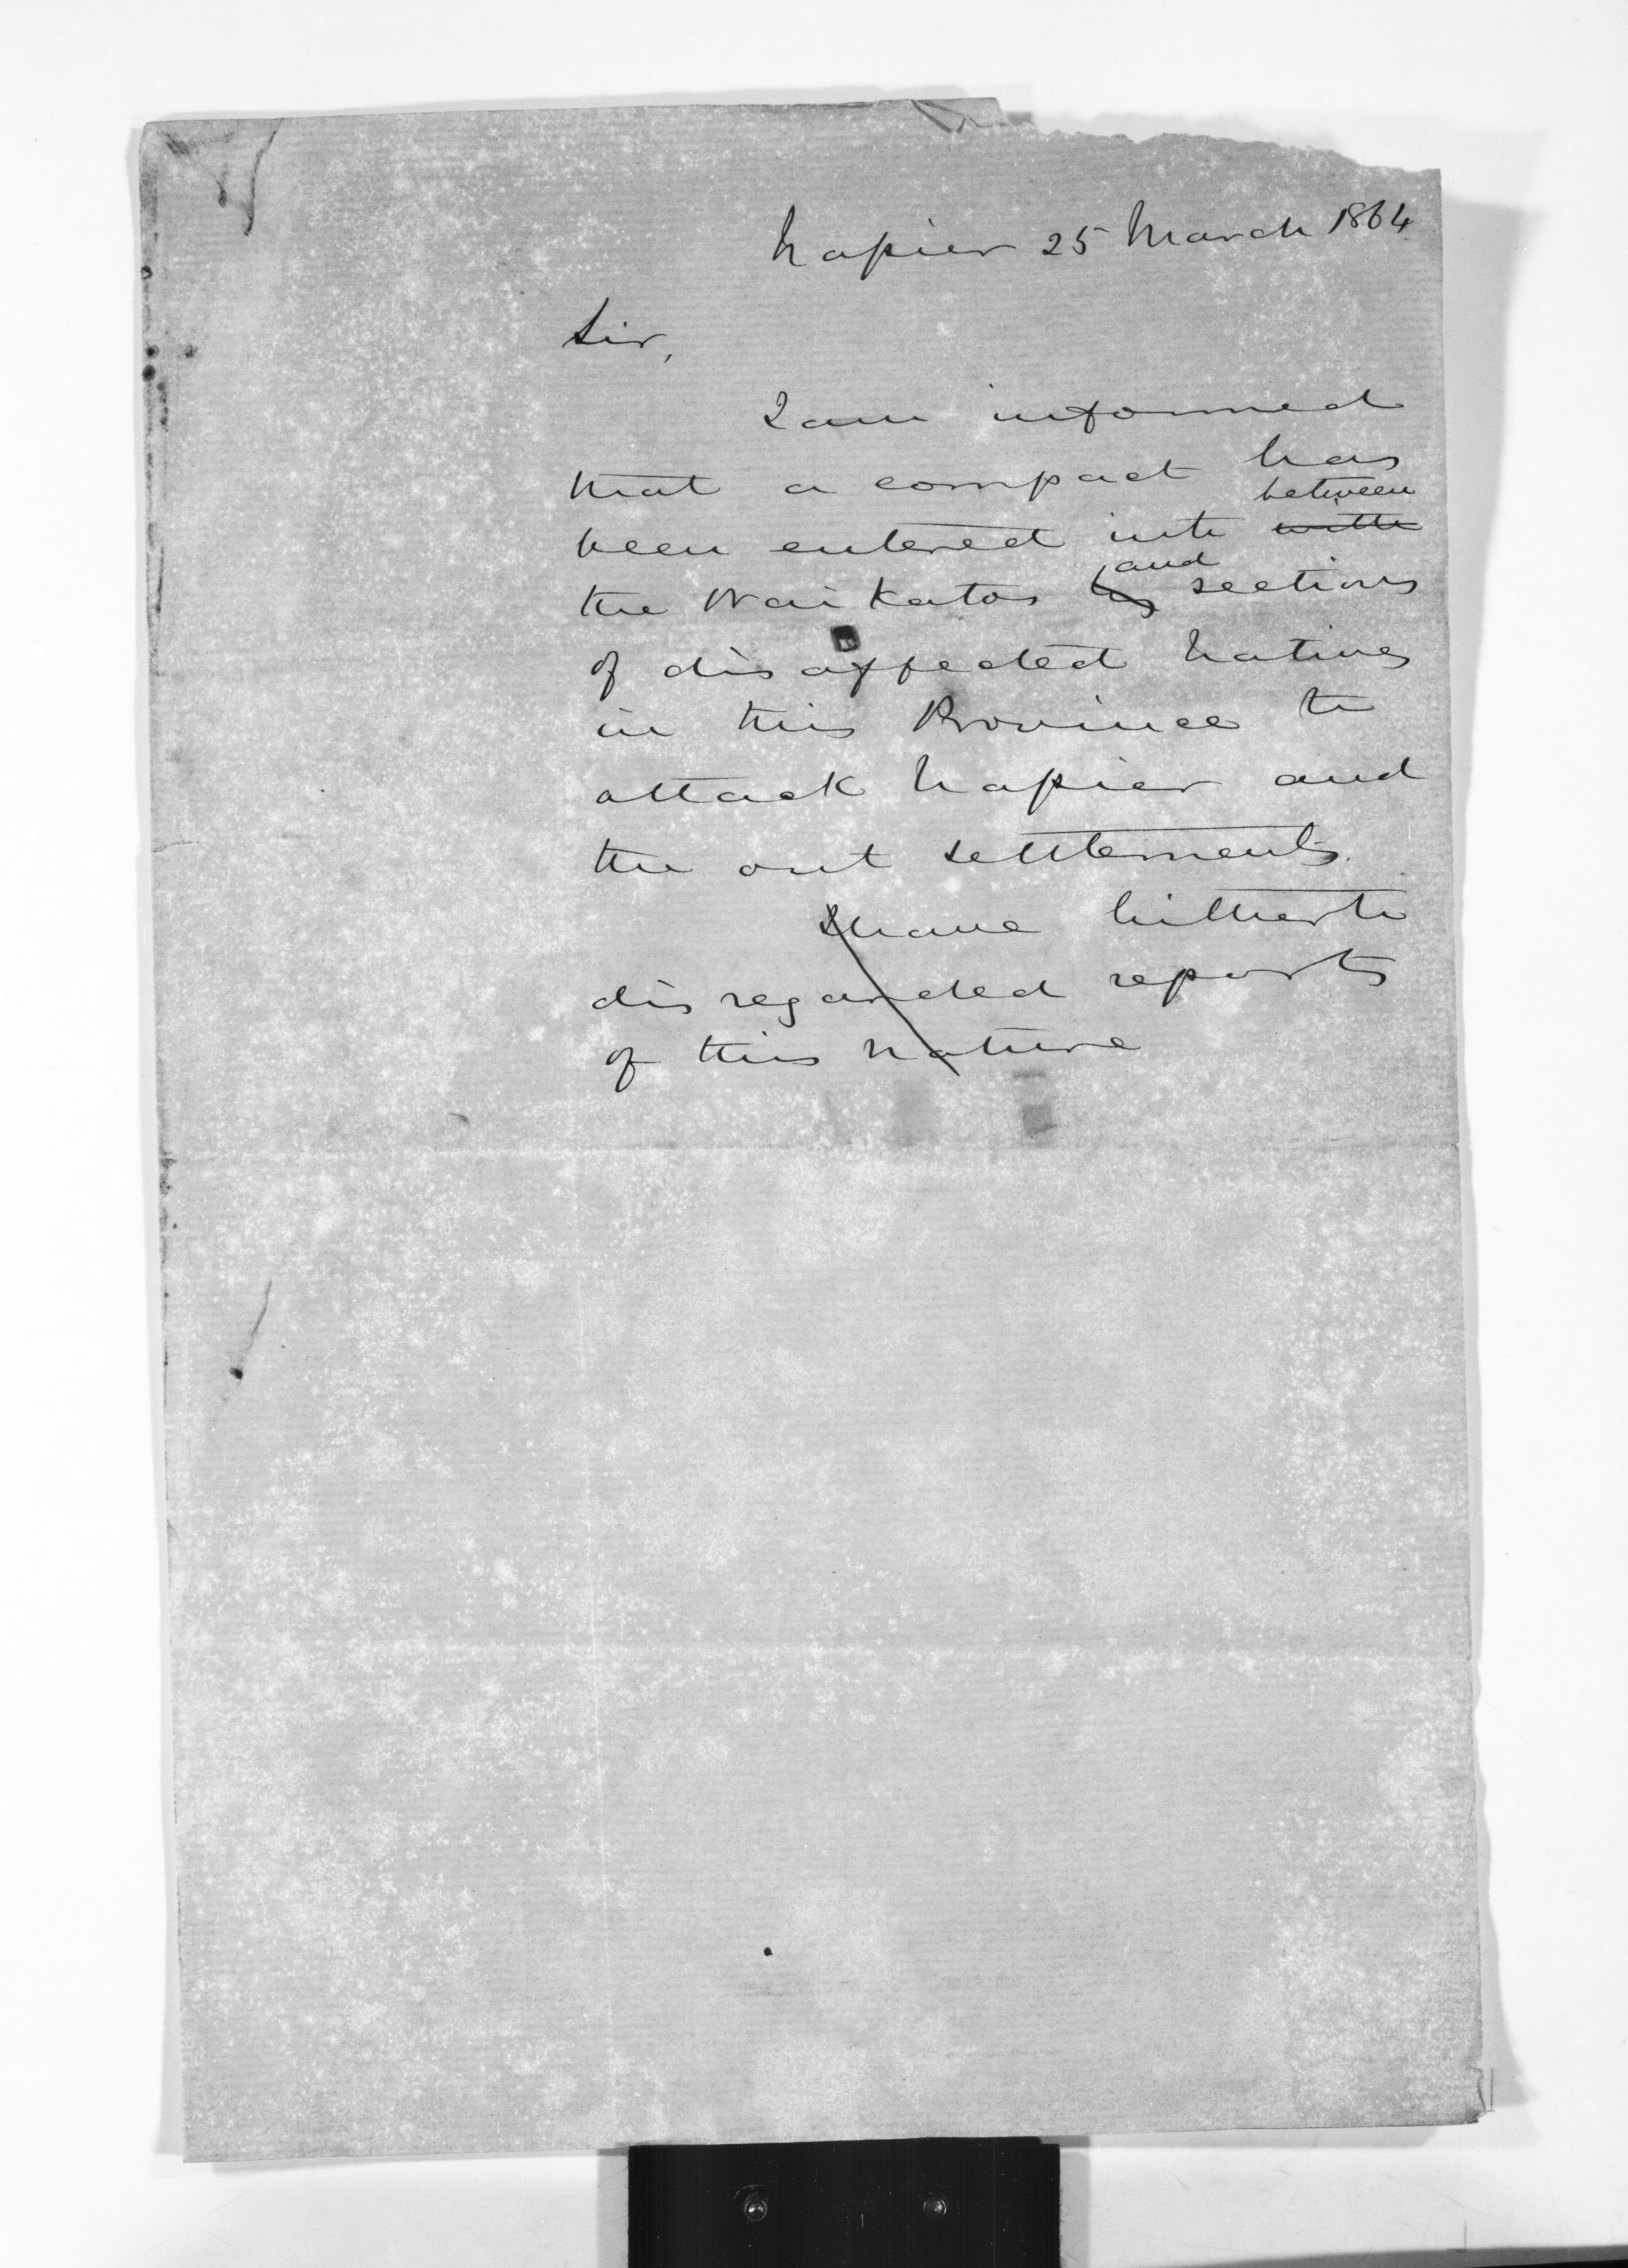 Napier 25 March 1864
Sir,
I am informed
that a compact has
between
been entered into with
and
the Waikatos by sections
of disaffected Natives
in this Province to
attack Napier and
the out settlements.
I have hitherto
disregarded reports
of this nature